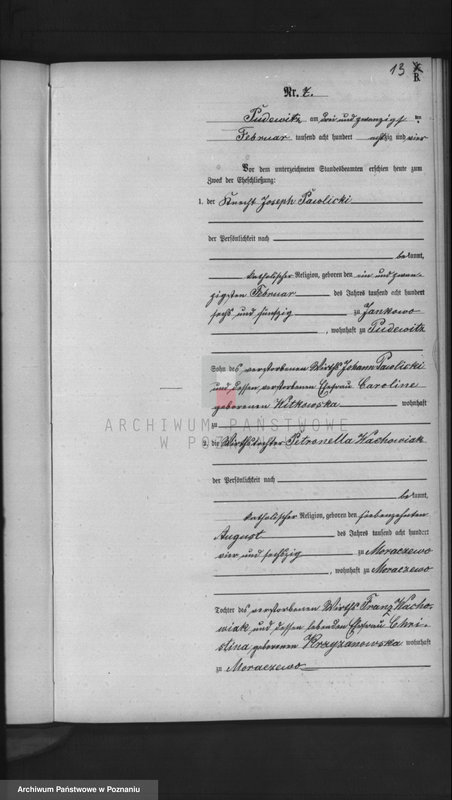 13
B.
Nr. 7.
Pudewitz am drei und zwanzigsten
Februar tausend acht hundert achtzig und vier
Vor dem unterzeichneten Standesbeamten erschien heute zum
Zweck der Eheschließung:
1. der Knecht Joseph Pawlicki
der Persönlichkeit nach
bekannt,
katholischer Religion, geboren den ein und zwan-
zigsten Februar des Jahres tausend acht hundert
sechs und fünfzig zu Jankowo
, wohnhaft zu Pudewitz
Sohn des verstorbenen Wirths Johann Pawlicki
und dessen verstorbenen Ehefrau Caroline
geborenen Witkowska wohnhaft
zu
ARCHIWUM PAŃSTWOWE
W POZNANIU
2. die Wirthstochter Petronella Wachowiak
der Persönlichkeit nach
bekannt,
katholischer Religion, geboren den siebenzehnten
August des Jahres tausend acht hundert
vier und sechszig zu Moraczewo
, wohnhaft zu Moraczewo
Tochter des verstorbenen Wirths Franz Wacho-
wiak und dessen lebenden Ehefrau Chri-
stina geborenen Krzyzanowska wohnhaft
zu Moraczewo
Archiwum Państwowe w Poznaniu